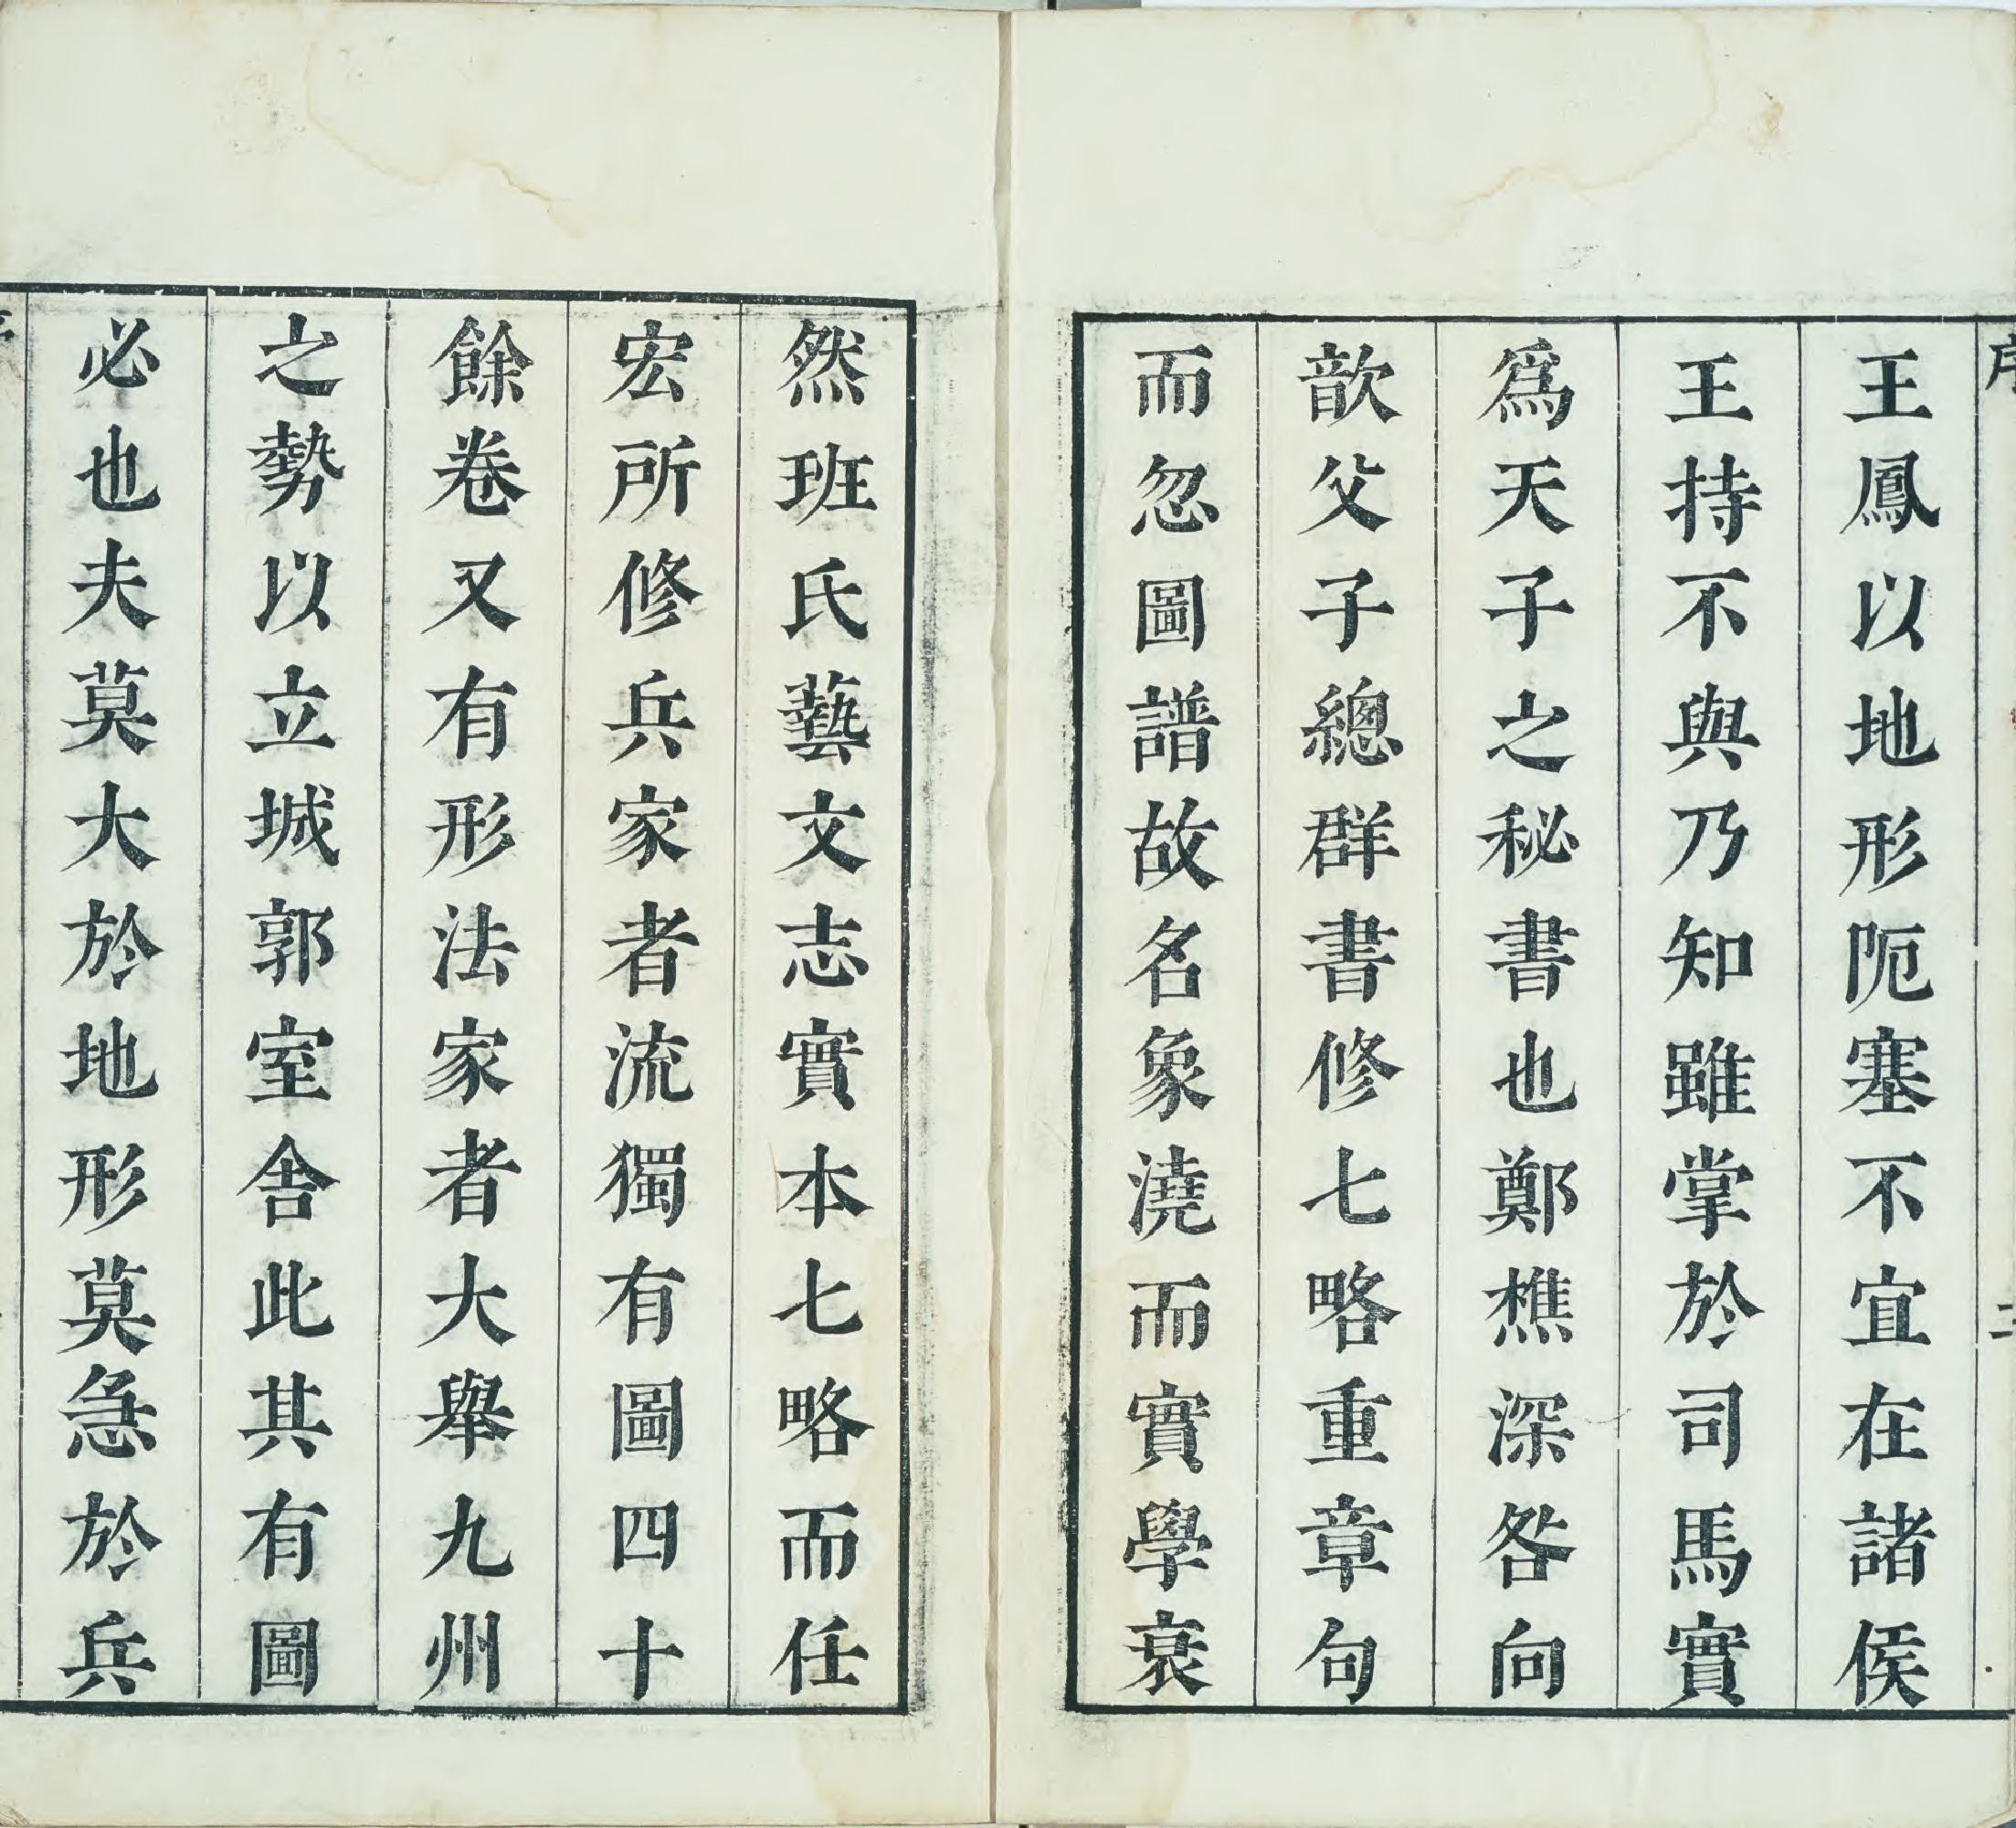 序
王鳳以地形阨塞不宜在諸侯
王持不與乃知雖掌於司馬實
爲天子之秘書也鄭樵深咎向
歆父子總群書修七略重章句
而忽圖譜故名象澆而實學衰
然班氏藝文志實本七略而任
宏所修兵家者流獨有圖四十
餘卷又有形法家者大舉九州
之勢以立城郭室舍此其有圖
必也夫莫大於地形莫急於兵